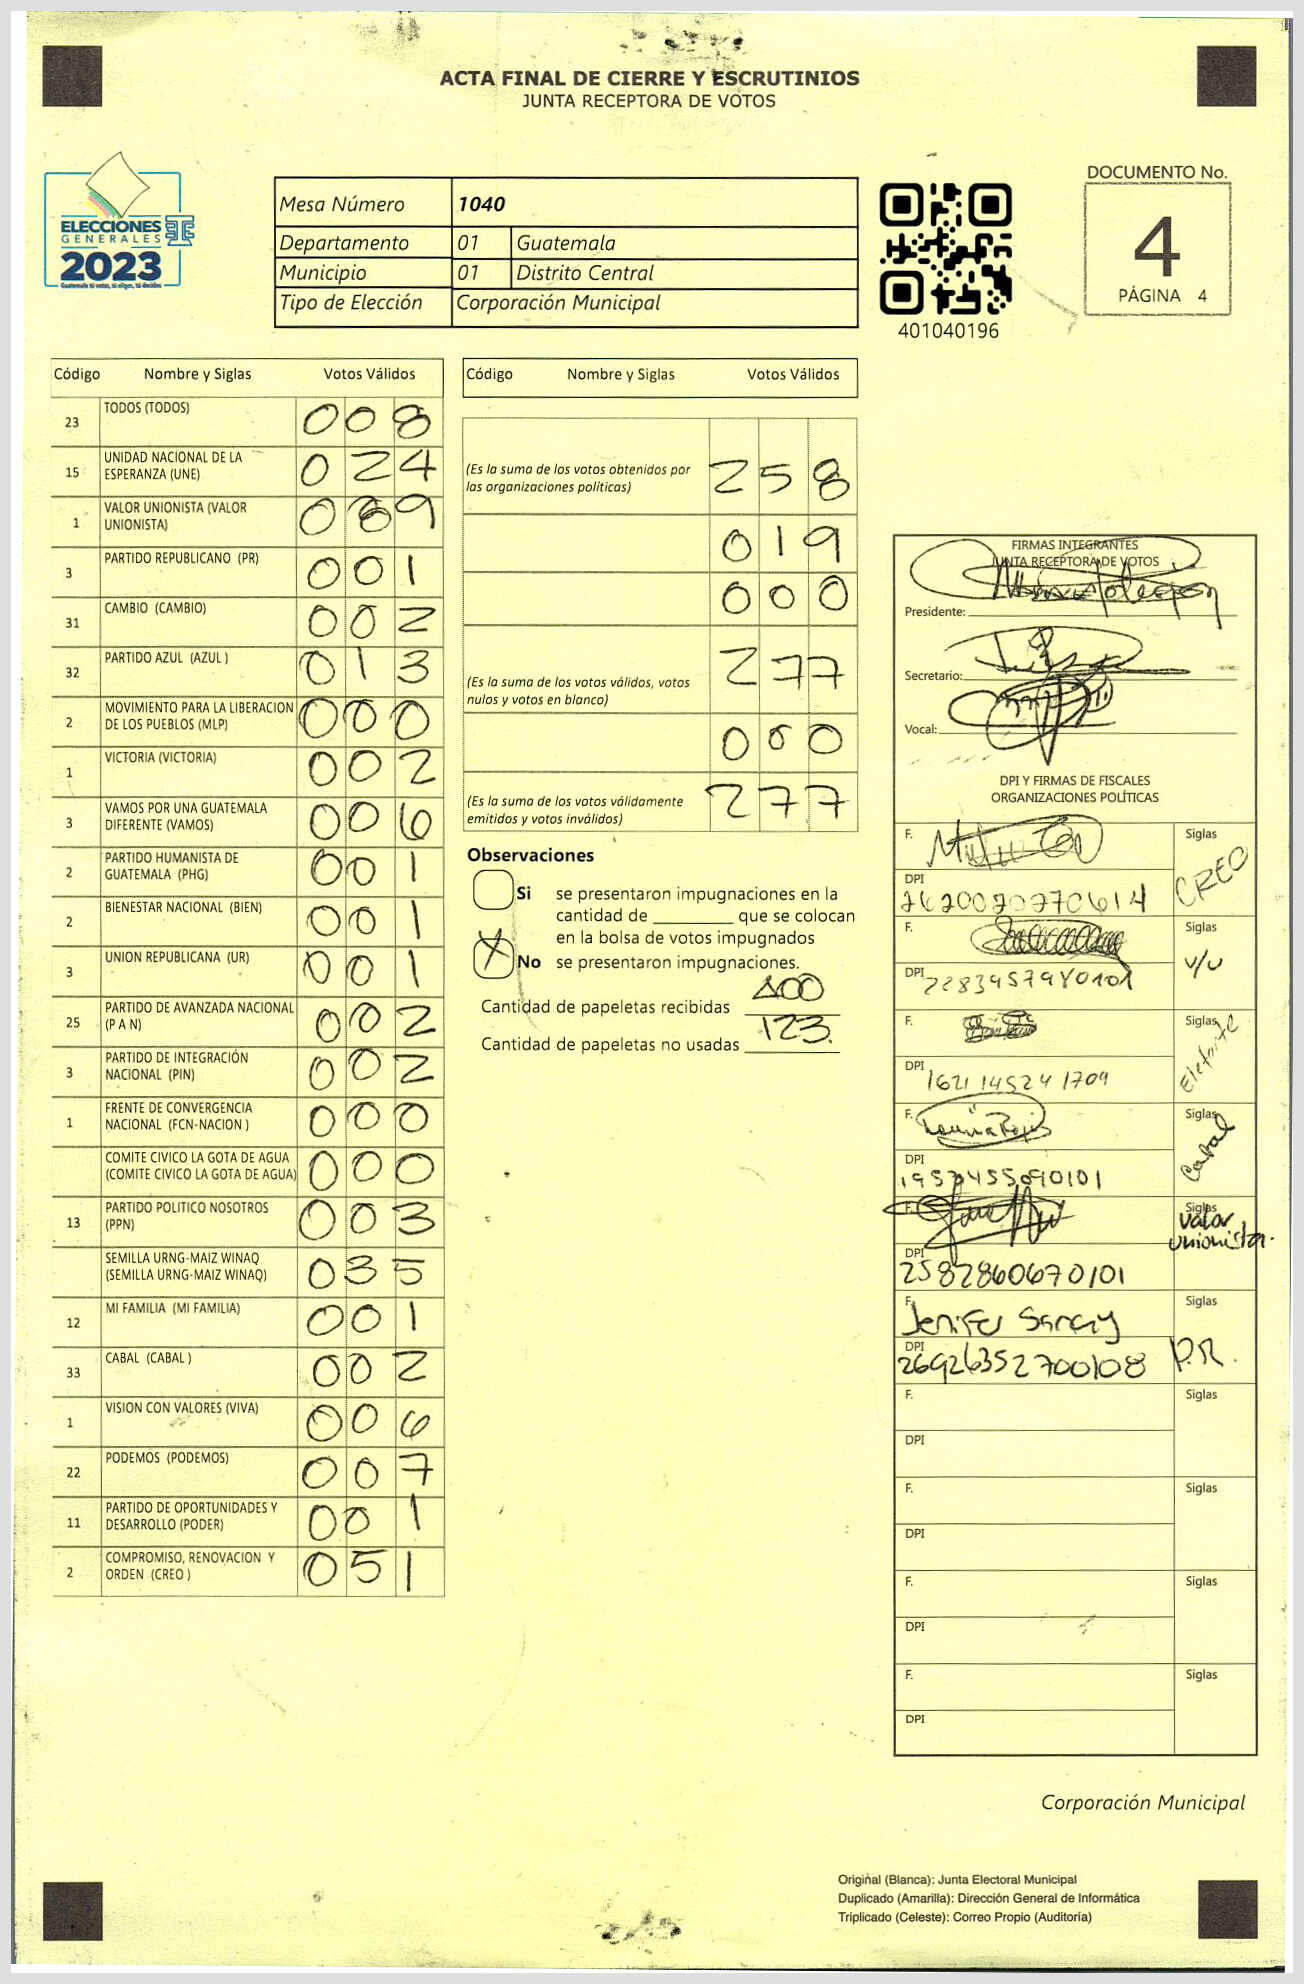 ACTA FINAL DE CIERRE Y ESCRUTINIOS
JUNTA RECEPTORA DE VOTOS
ELECCIONES
GENERALES
2023
Guatemala tú votas, tú eliges, tú decides
Mesa Número 1040
Departamento 01 Guatemala
Municipio 01 Distrito Central
Tipo de Elección Corporación Municipal
401040196
DOCUMENTO No.
4
PÁGINA 4
Código Nombre y Siglas Votos Válidos
23 TODOS (TODOS) 008
15 UNIDAD NACIONAL DE LA
ESPERANZA (UNE) 024
1 VALOR UNIONISTA (VALOR
UNIONISTA) 089
3 PARTIDO REPUBLICANO (PR) 001
31 CAMBIO (CAMBIO) 002
32 PARTIDO AZUL (AZUL ) 013
2 MOVIMIENTO PARA LA LIBERACION
DE LOS PUEBLOS (MLP) 000
1 VICTORIA (VICTORIA) 002
3 VAMOS POR UNA GUATEMALA
DIFERENTE (VAMOS) 006
2 PARTIDO HUMANISTA DE
GUATEMALA (PHG) 001
2 BIENESTAR NACIONAL (BIEN) 001
3 UNION REPUBLICANA (UR) 001
25 PARTIDO DE AVANZADA NACIONAL
(P A N) 002
3 PARTIDO DE INTEGRACIÓN
NACIONAL (PIN) 002
1 FRENTE DE CONVERGENCIA
NACIONAL (FCN-NACION ) 000
COMITE CIVICO LA GOTA DE AGUA
(COMITE CIVICO LA GOTA DE AGUA) 000
13 PARTIDO POLITICO NOSOTROS
(PPN) 003
SEMILLA URNG-MAIZ WINAQ
(SEMILLA URNG-MAIZ WINAQ) 035
12 MI FAMILIA (MI FAMILIA) 001
33 CABAL (CABAL ) 002
1 VISION CON VALORES (VIVA) 006
22 PODEMOS (PODEMOS) 007
11 PARTIDO DE OPORTUNIDADES Y
DESARROLLO (PODER) 001
2 COMPROMISO, RENOVACION Y
ORDEN (CREO ) 051
Código Nombre y Siglas Votos Válidos
(Es la suma de los votos obtenidos por
las organizaciones políticas) 258
019
000
(Es la suma de los votos válidos, votos
nulos y votos en blanco) 277
000
(Es la suma de los votos válidamente
emitidos y votos inválidos) 277
Observaciones
Si se presentaron impugnaciones en la
cantidad de ________ que se colocan
en la bolsa de votos impugnados
X No se presentaron impugnaciones.
Cantidad de papeletas recibidas 400
Cantidad de papeletas no usadas 123.
FIRMAS INTEGRANTES
JUNTA RECEPTORA DE VOTOS
Presidente:
Secretario:
Vocal:
DPI Y FIRMAS DE FISCALES
ORGANIZACIONES POLÍTICAS
F. Siglas
CREO
DPI 2620020270614
F. Siglas
V/U
DPI 2283957980101
F. Siglas
DPI 1621 14524 1709
F. Siglas
Cabal
DPI
F. Siglas
Valor
Unionista.
DPI
2582860670101
F. Siglas
Jenifer Sancy
DPI P.R.
26926352700108
F. Siglas
DPI
F. Siglas
DPI
F. Siglas
DPI
F. Siglas
DPI
Corporación Municipal
Original (Blanca): Junta Electoral Municipal
Duplicado (Amarilla): Dirección General de Informática
Triplicado (Celeste): Correo Propio (Auditoría)